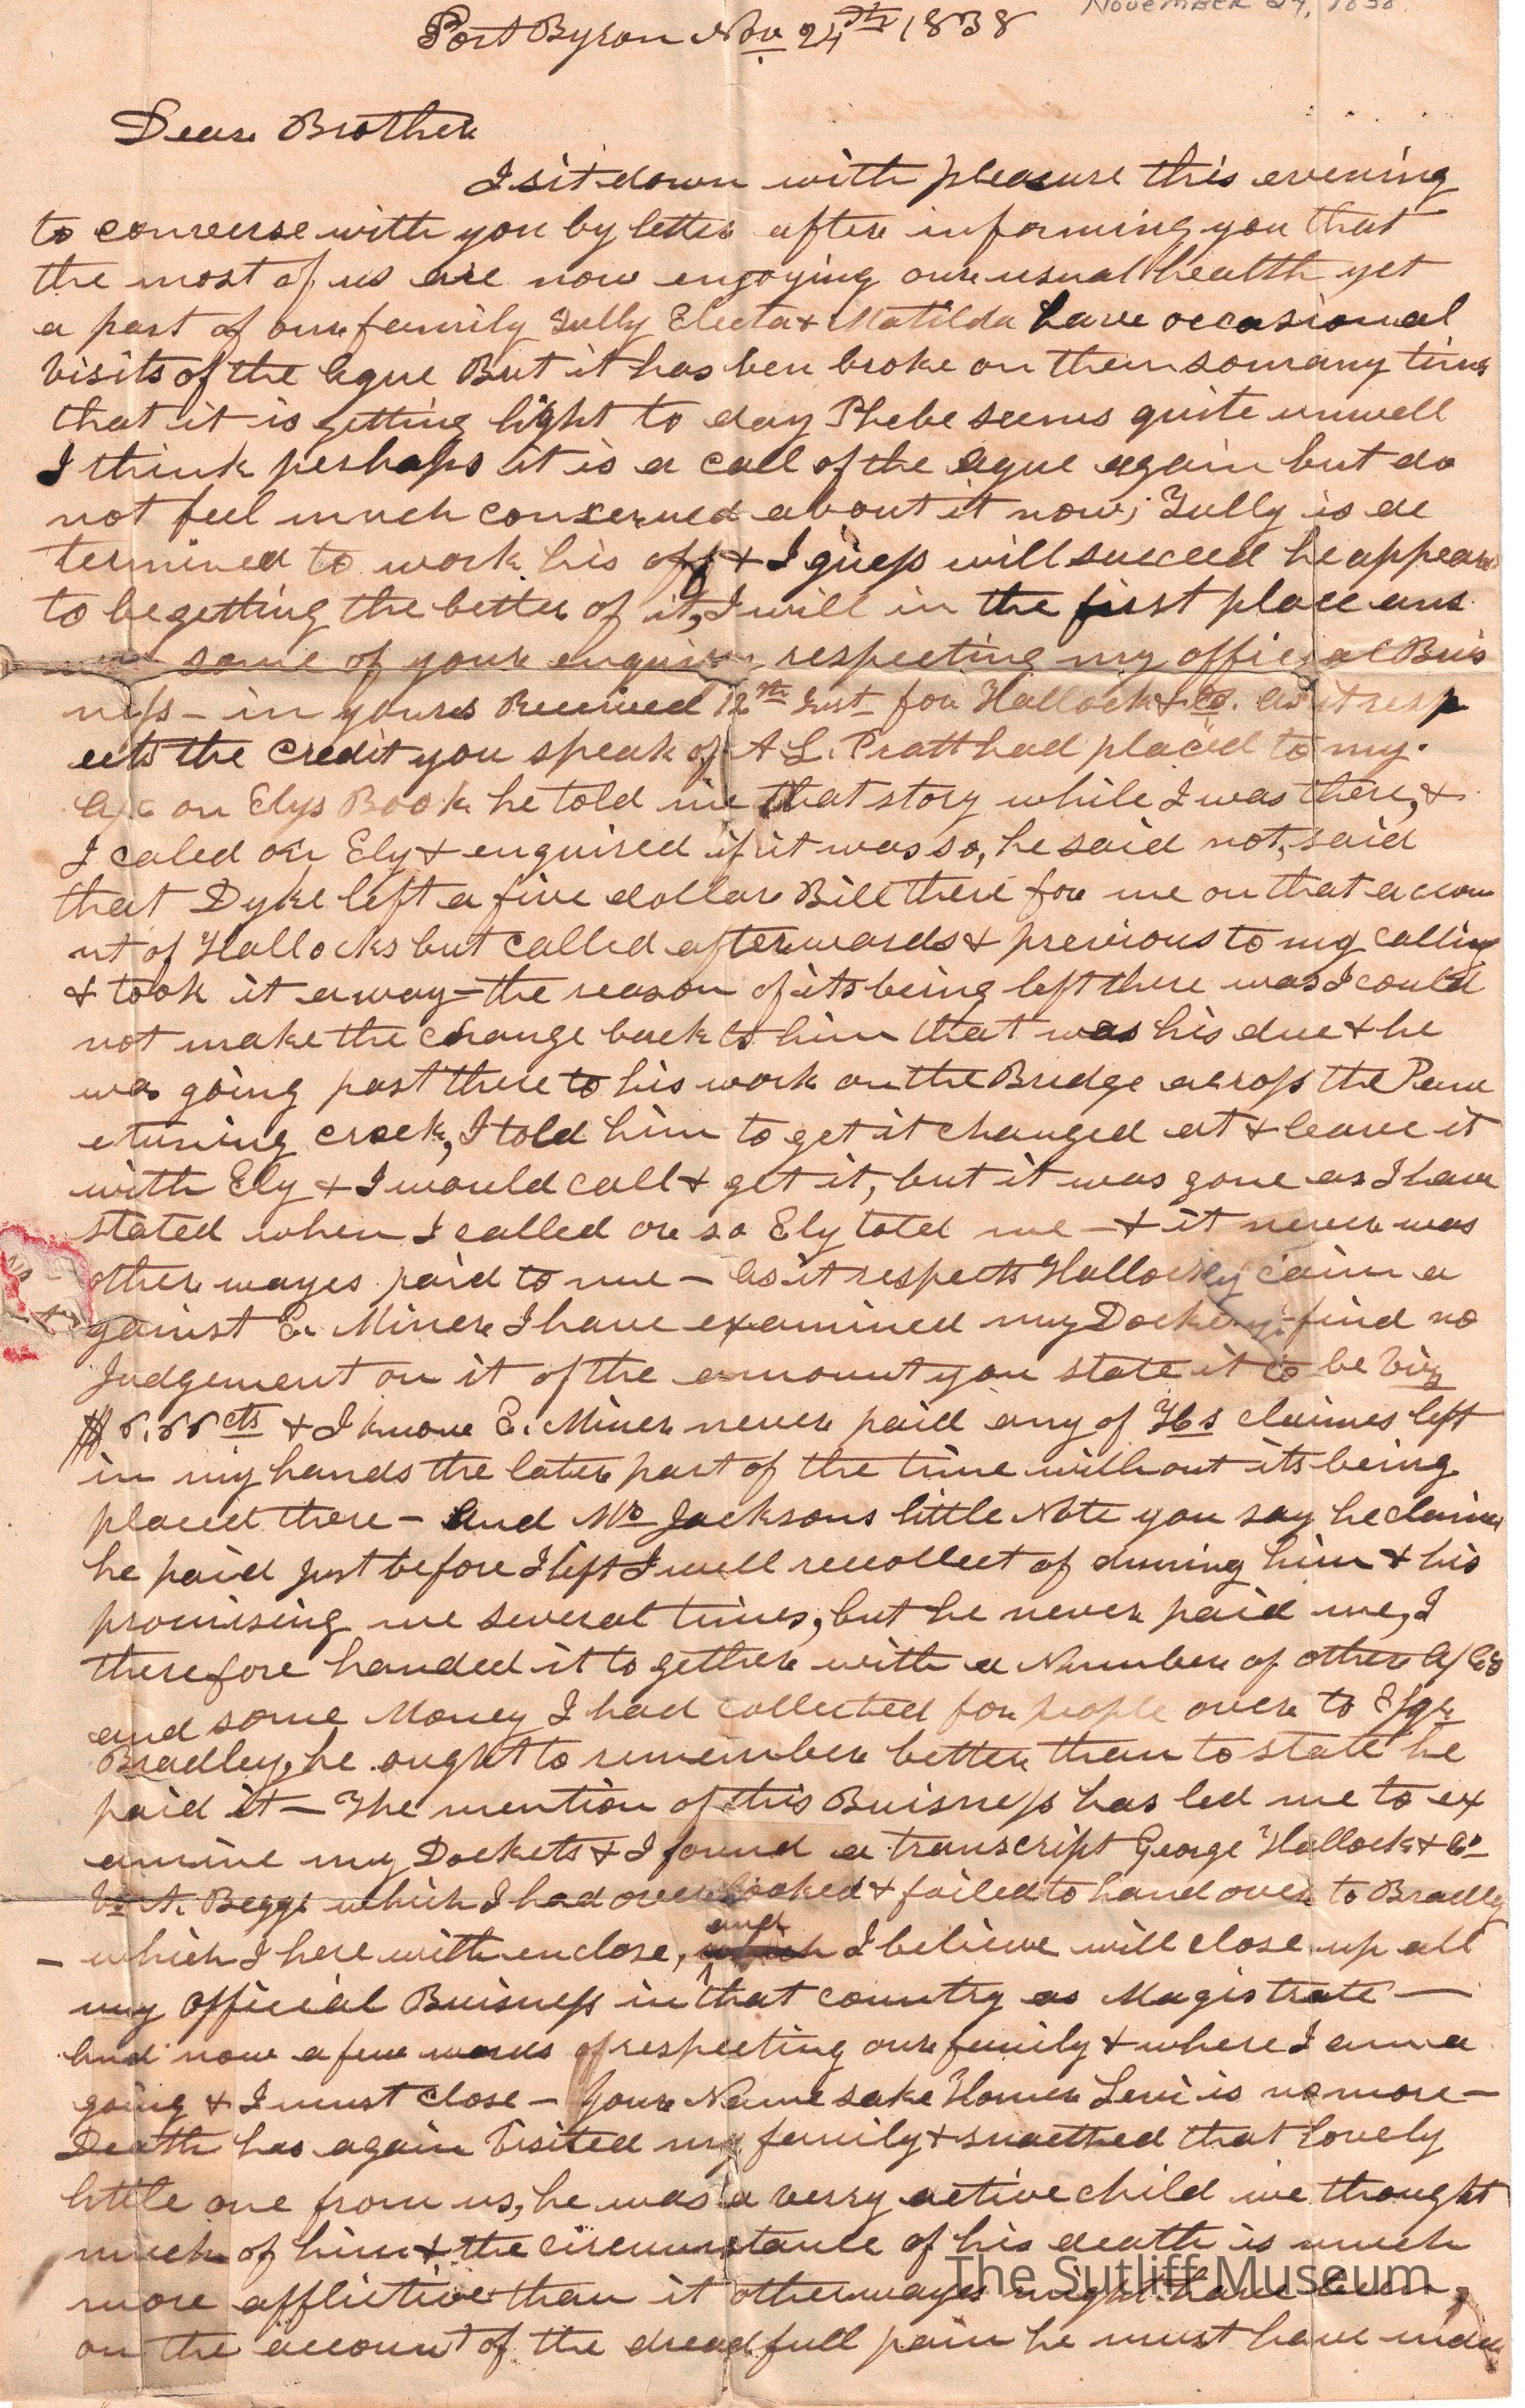 November 24, 1838.
Port Byron Nov 24th 1838
Dear Brother
I sit down with pleasure this evening
to converse with you by letter after informing you that
the most of us are now engoying our usual health yet
a part of our family Tully Electa & Matilda have occasional
visits of the Ague But it has ben broke on them so many times
that it is getting light to day Phebe seems quite unwell
I think perhaps it is a call of the Ague again but do
not feel much conserned about it now; Tully is de
termined to work his off & I guess will succeed he appears
to be getting the better of it, I will in the first place ans
some of your enquiries respecting my official Buis
ness - in yours Received 12th Inst for Hallock & Co. As it resp
ects the credit you speak of A L. Pratt had placed to my
A/c on Elys Book he told me that story while I was there, &
I caled on Ely & enquired if it was so, he said not, said
that Dyke left a five dollar Bill there for me on that accou
nt of Hallocks but called afterwards & previous to my calling
& took it away - the reason of its being left there was I could
not make the change back to him that was his due & he
was going past there to his work on the Bridge across the Paw
etuning creek, I told him to get it changed at & leave it
with Ely & I would call & get it, but it was gone as I have
stated when I called or so Ely told me - & it never was
other wayes paid to me - As it respects Hallocks claim a
gainst E. Miner I have examined my Docket & find no
Judgement on it of the amount you state it to be viz
cts & I know E. Miner never paid any of Hks claimes left
in my hands the later part of the time without its being
placed there - And Mr Jacksons little Note you say he claims
he paid just before I left I well recollect of duning him & his
promising me several times, but he never paid me, I
therefore handed it to gether with a Number of other A/cs
and some Money I had collected for people over to Esqr
Bradley, he ought to remember better than to state he
paid it - The mention of this Buisness has led me to ex
amine my Dockets & I found a transcript George Hallock & Co
Vs A. Beggs which I had over looked & failed to hand over to Bradly
- which I here with enclose, and I believe will close up all
my official Buisness in that country as Magistrate -
And now a few words of respecting our family & where I am a
going & I must close - Your Name sake Homer Levi is no more -
Death has again visited my family & snatched that lovely
little one from us, he was a verry active child we thought
much of him & the circumstance of his death is much
more afflictive than it otherways might have been,
on the account of the dreadfull pain he must have indu
The Sutliff Museum